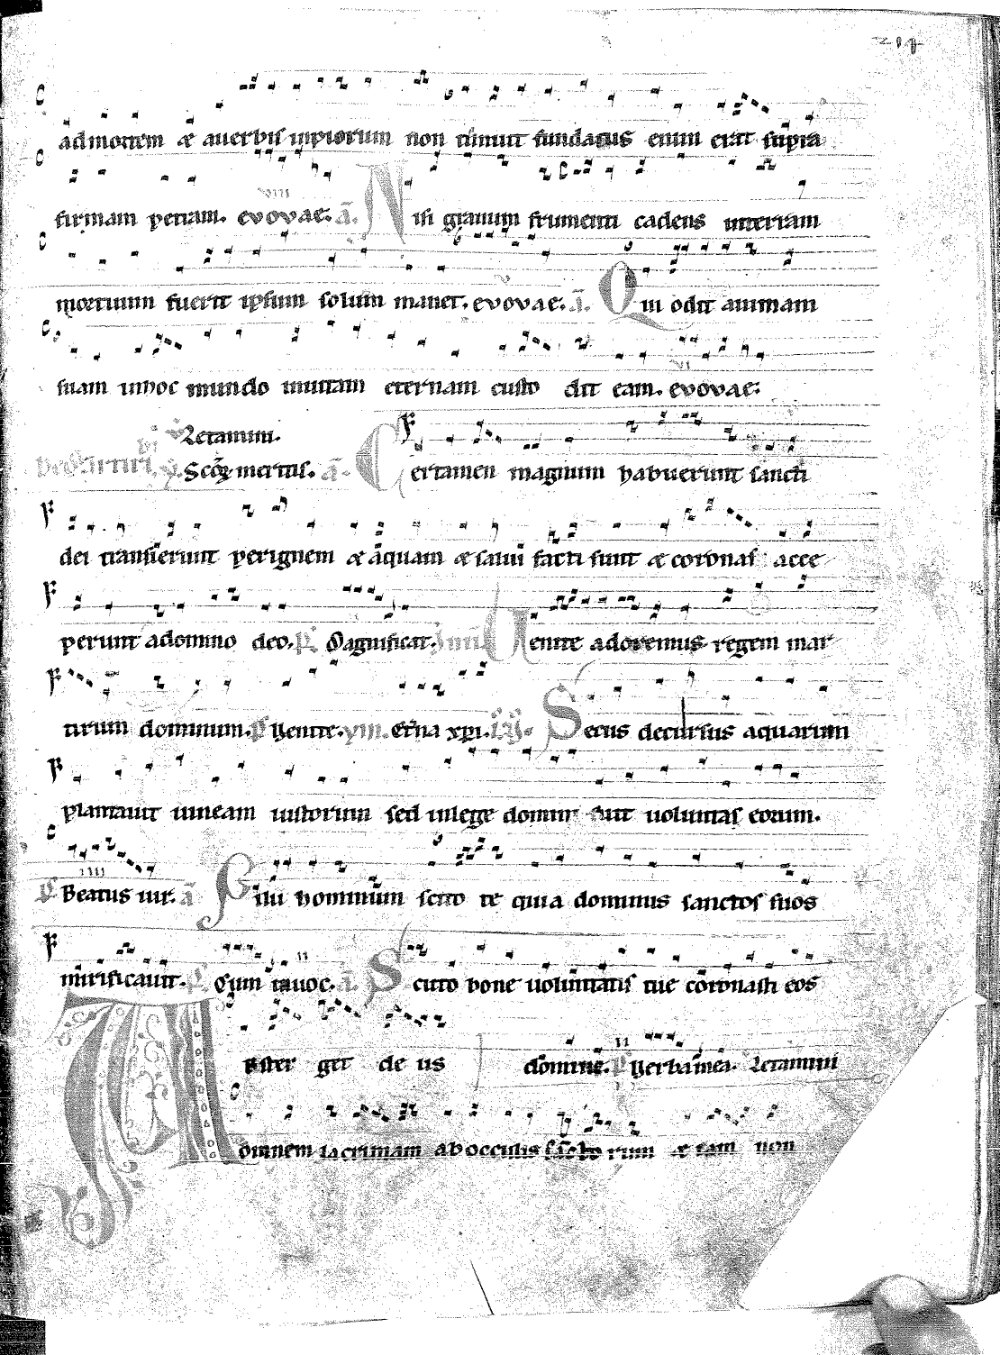 214
ad mortem et a uerbis inpiorum non timuit fundatus enim erat supra
firmam petram. evovae. a. Nisi granum frumenti cadens interram
mortuum fuerit ipsum solum manet. evovae. a. Qui odit animam
suam inhoc mundo inuitam eternam custo dit eam. evovae.
Letamini.
Scōꝝ meritis. a. Certamen magnum habuerunt sancti
dei transierunt perignem et aquam et salui facti sunt et coronas acce
perunt adomino deo. Magnificat. Uenite adoremus regem mar
tirum dominum. Uenite. viii. Etn̄a xp̄i. Secus decursus aquarum
plantauit uineam iustorum sed inlege domini fuit uoluntas eorum.
Beatus uir. a Filii hominum scito te quia dominus sanctos suos
mirificauit. Cum inuoc. a. Scuto bone uoluntatis tue coronasti eos
domine. Uerba mea. Letamini
Abster get de us
omnem lacrimam aboculis sanctorum et iam non